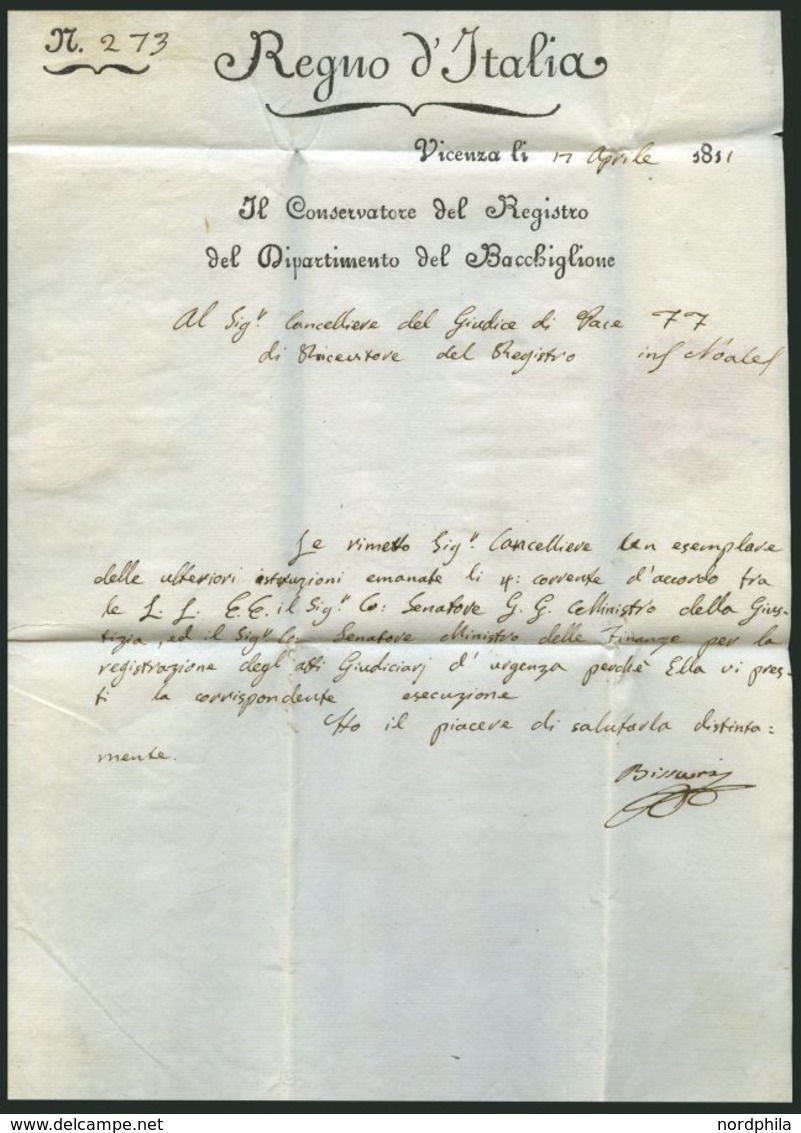 N. 273
Regno d'Italia
Vicenza li 17 Aprile 1811
Il Conservatore del Registro
del Dipartimento del Bacchiglione
Al Sigr. Cancelliere del Giudice di Pace FF
di Ricevitore del Registro in Noale
Le rimetto Sigr. Cancelliere un esemplare
delle ulteriori istruzioni emanate li 4: corrente d'accordo fra
le L. L. E. E. il Sigr. Co: Senatore G. G. Ministro della Gius-
tizia, ed il Sigr. Co: Senatore Ministro delle Finanze per la
registrazione degl'atti Giudiciarj d'urgenza perchè Ella vi pres-
ti la corrispondente esecuzione
Ho il piacere di salutarla distinta=
mente.
www.delcampe.net
nordphila